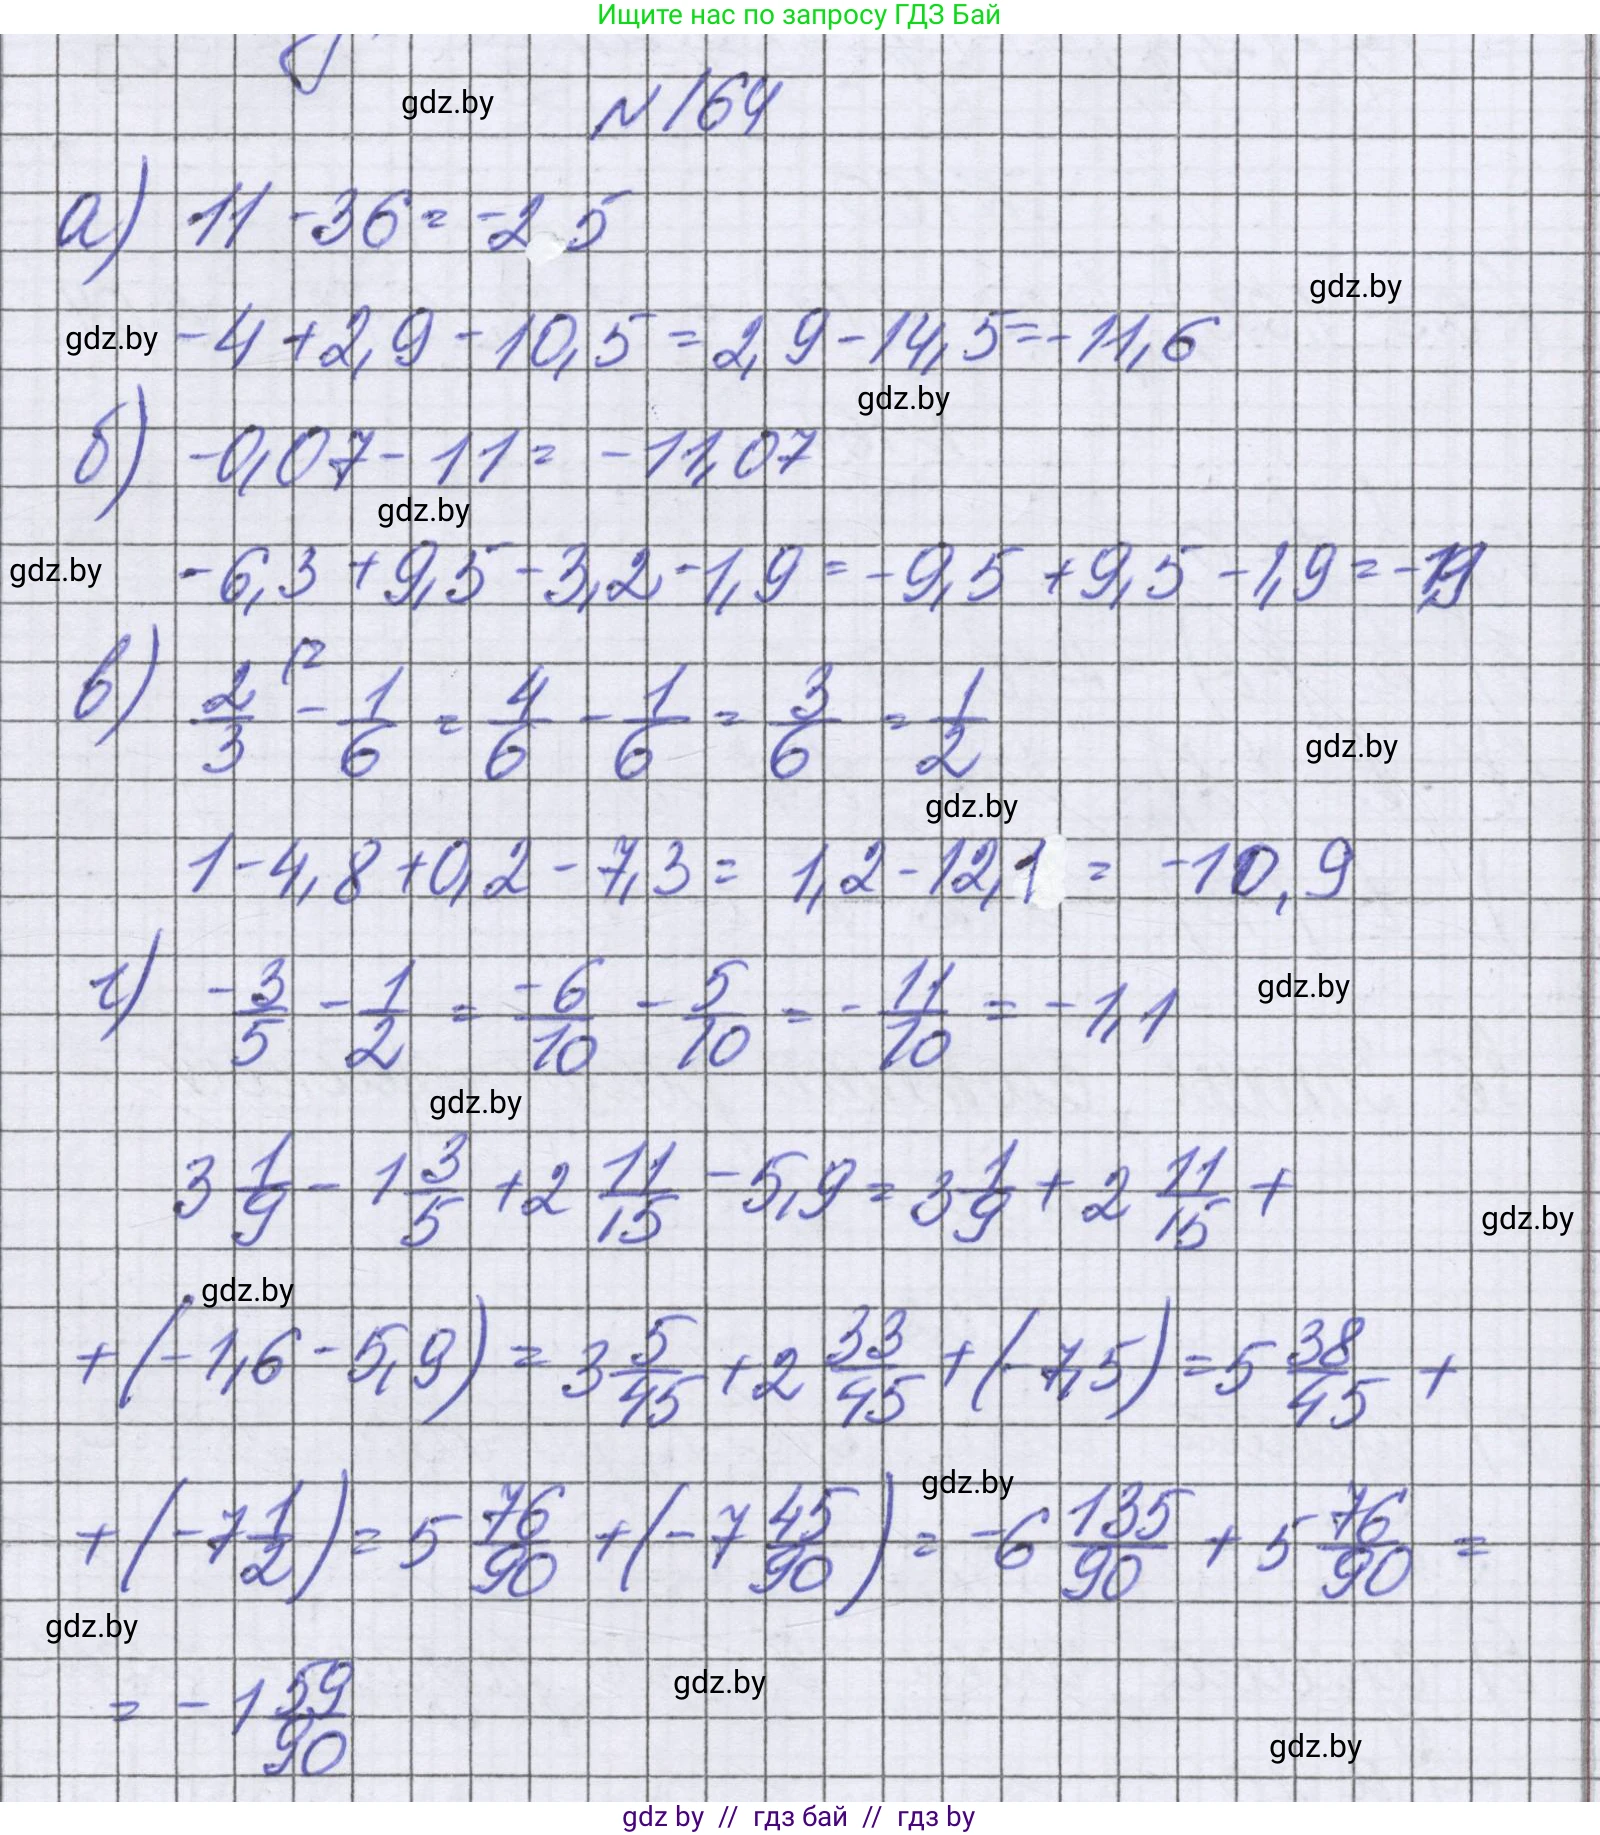 Ищите нас по запросу ГДЗ Бай
gdz.by
№164
а) 11 - 36 = -25
gdz.by
gdz.by
-4 + 2,9 - 10,5 = 2,9 - 14,5 = -11,6
gdz.by
б) -0,07 - 11 = -11,07
gdz.by
gdz.by
-6,3 + 9,5 - 3,2 - 1,9 = -9,5 + 9,5 - 1,9 = -1,9
в) 2/3 (2 - 1/6 = 4/6 - 1/6 = 3/6 = 1/2
gdz.by
gdz.by
1 - 4,8 + 0,2 - 7,3 = 1,2 - 12,1 = -10,9
г) -3/5 - 1/2 = -6/10 - 5/10 = -11/10 = -1,1
gdz.by
gdz.by
3 1/9 - 1 3/5 + 2 11/15 - 5,9 = 3 1/9 + 2 11/15 +
gdz.by
gdz.by
+ (-1,6 - 5,9) = 3 5/45 + 2 33/45 + (-7,5) = 5 38/45 +
gdz.by
+ (-7 1/2) = 5 76/90 + (-7 45/90) = -6 135/90 + 5 76/90 =
gdz.by
= -1 59/90
gdz.by
gdz.by
gdz by // гдз бай // гдз by